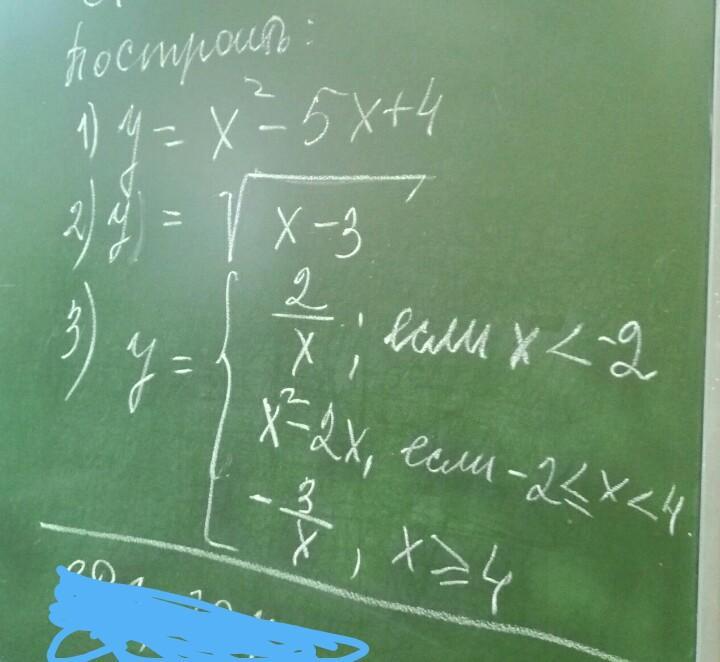 Построить:
1) y = x² - 5x + 4
2) y = √(x - 3)
3) y = { 2/x ; если x < -2
x² - 2x, если -2 ≤ x < 4
- 3/x , x ≥ 4